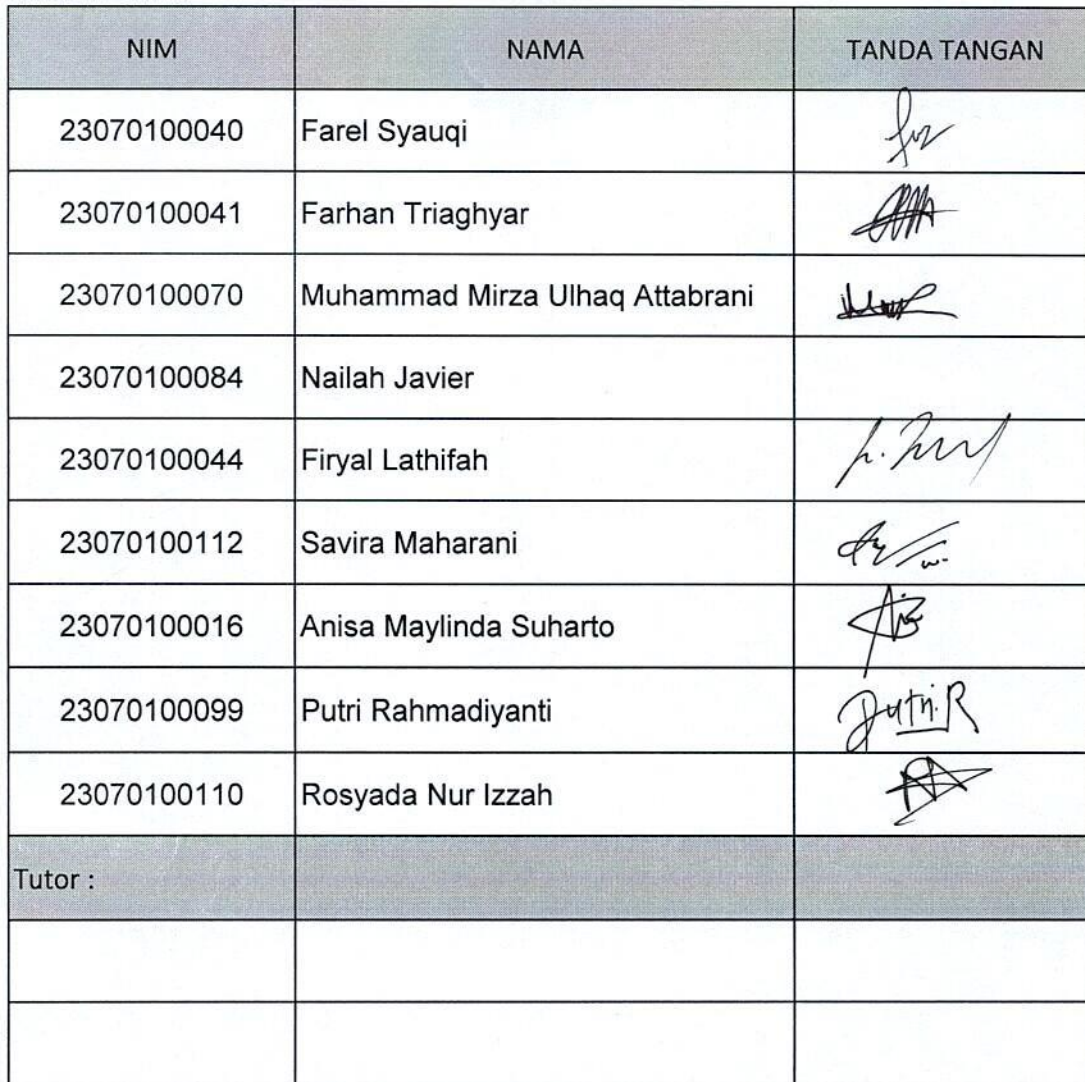 NIM NAMA TANDA TANGAN
23070100040 Farel Syauqi
23070100041 Farhan Triaghyar
23070100070 Muhammad Mirza Ulhaq Attabrani
23070100084 Nailah Javier
23070100044 Firyal Lathifah
23070100112 Savira Maharani
23070100016 Anisa Maylinda Suharto
23070100099 Putri Rahmadiyanti Putri.R
23070100110 Rosyada Nur Izzah
Tutor :